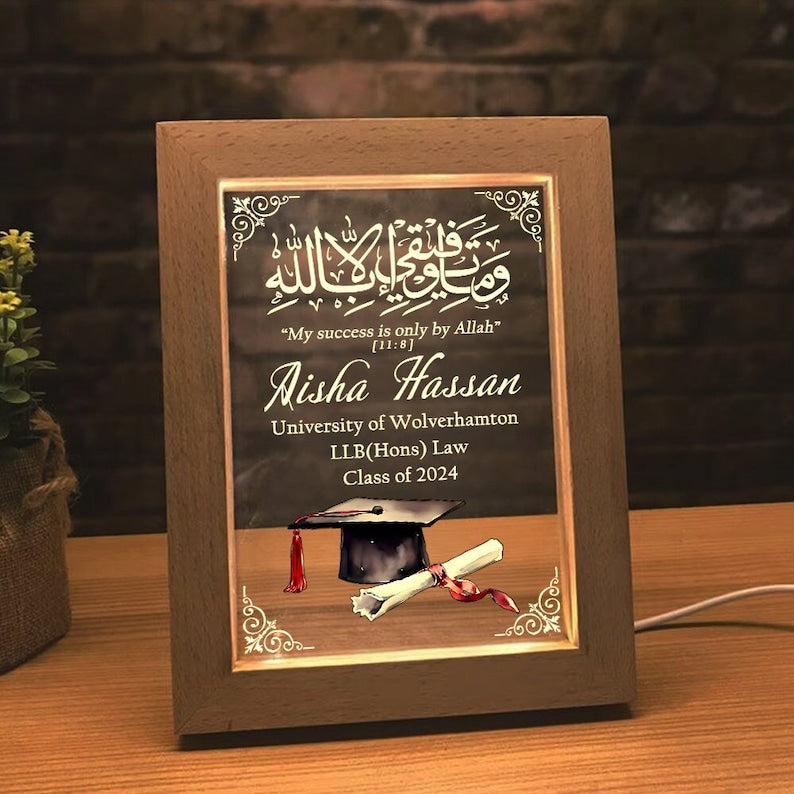 وَمَا تَوْفِيقِي إِلَّا بِاللَّهِ
“My success is only by Allah”
[11:8]
Aisha Hassan
University of Wolverhamton
LLB(Hons) Law
Class of 2024